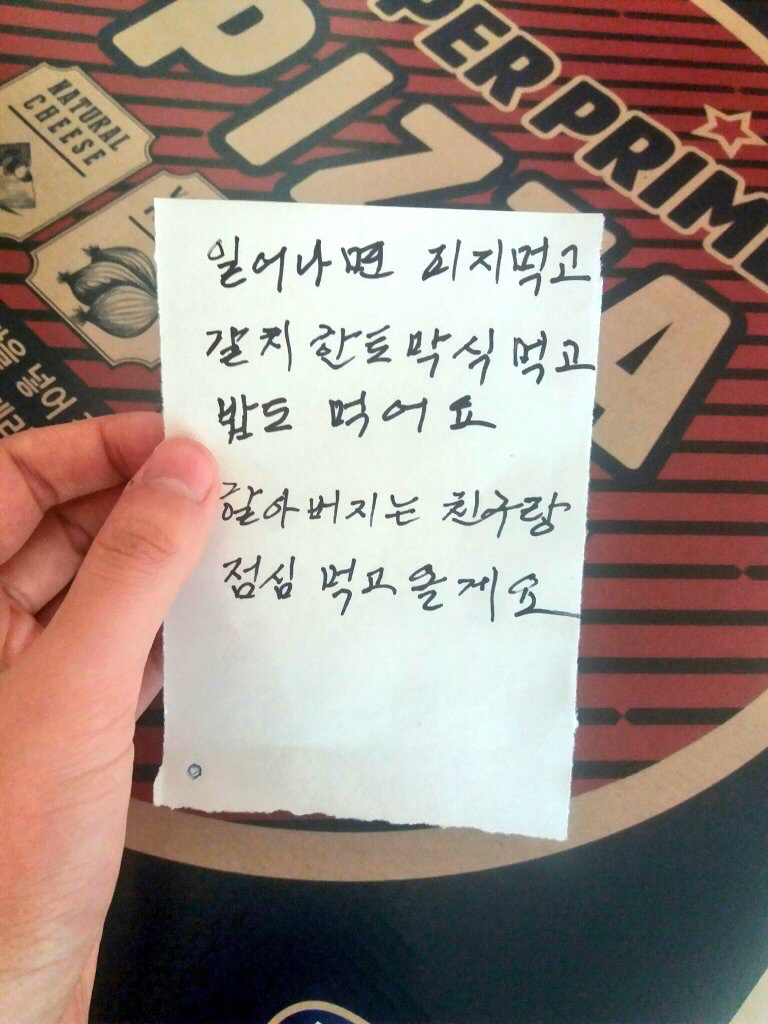 PER PRIM
PIZZA
NATURAL
CHEESE
넣어
일어나면 피지먹고
갈치 한토막식 먹고
밥도 먹어요
할아버지는 친구랑
점심 먹고 올게요